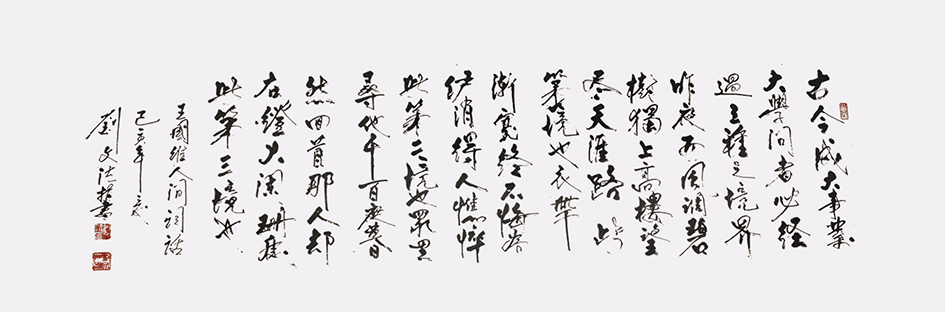 古今成大事業
大學問者必經
過三種之境界
昨夜西風凋碧
樹獨上高樓望
尽天涯路此
第一境也衣帶
漸寬終不悔為
伊消得人憔悴
此第二境也眾里
尋他千百度驀
然回首那人却
在燈火闌珊處
此第三境也
王國維人間詞話
己丑年
劉文